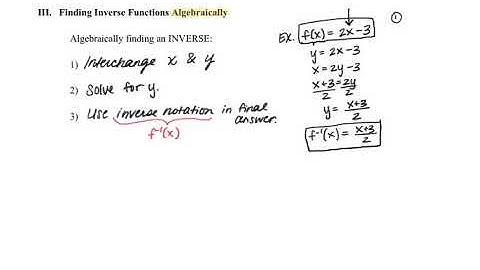 III. Finding Inverse Functions Algebraically
Algebraically finding an INVERSE:
1) Interchange x & y
2) Solve for y.
3) Use inverse notation in final answer.
f⁻¹(x)
①
EX. f(x) = 2x-3
y = 2x-3
x = 2y-3
x+3/2 = 2y/2
y = x+3/2
f⁻¹(x) = x+3/2